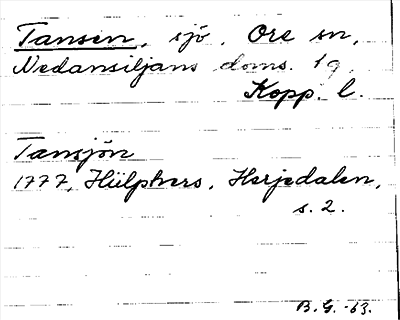 Tansen, sjö, Ore sn,
Nedansiljans doms. lg,
Kopp. l.
Tansjön
1777, Hülphers, Herjedalen,
s. 2.
B. G. -63.